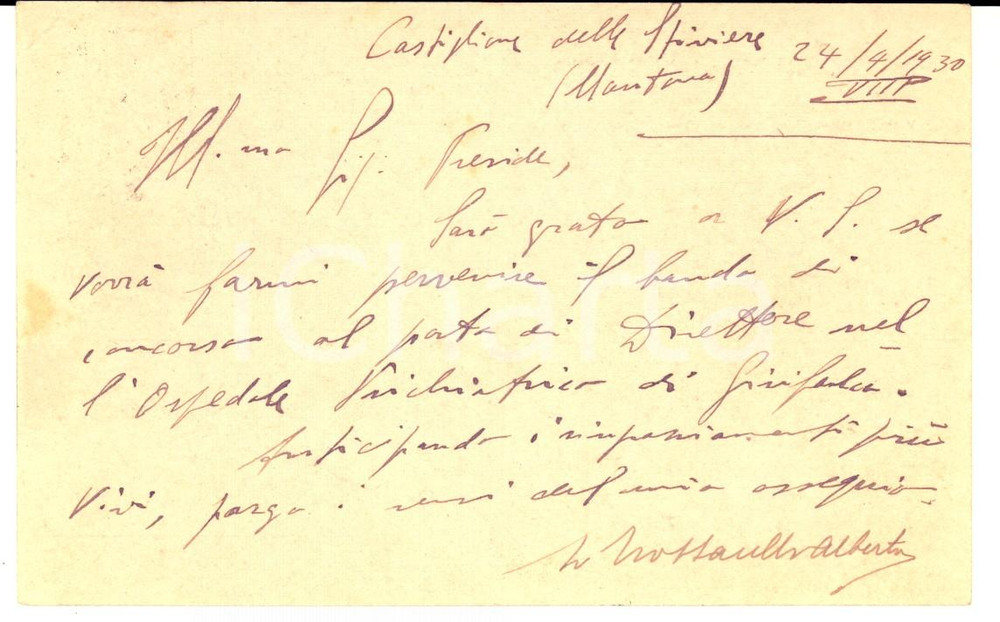 Castiglione delle Stiviere 24/4/1930
(Mantova) VIII
Ill.mo Sig. Preside,
Sarò grato a V. S. se
vorrà farmi pervenire il bando di
concorso al posto di Direttore nel
l'Ospedale Psichiatrico di Girifalco.
Anticipando i ringraziamenti più
vivi, porgo i sensi del mio ossequio.
Alberto
iCharta